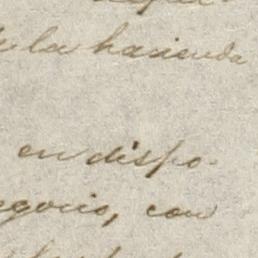 de la hacienda
en dispo-
egocio, con